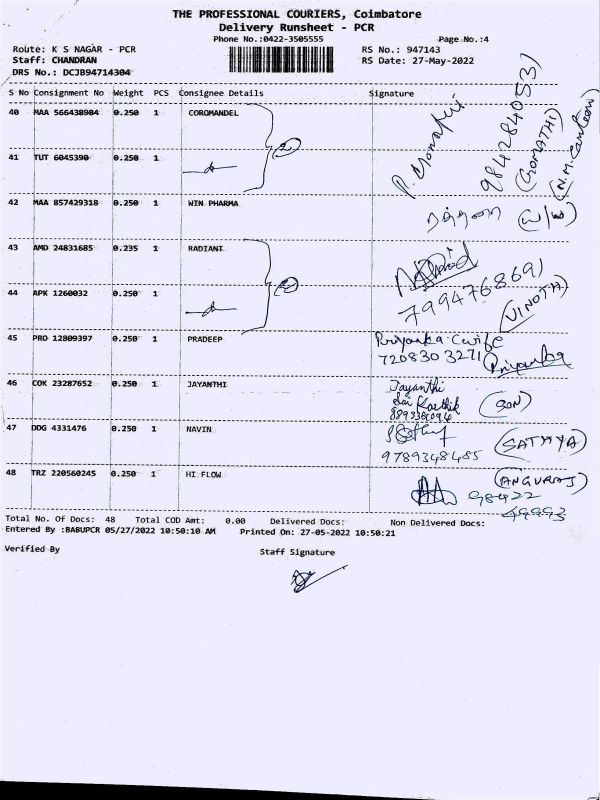 THE PROFESSIONAL COURIERS, Coimbatore
Delivery Runsheet - PCR
Phone No.:0422-3505555
Page No.:4
Route: K S NAGAR - PCR
RS No.: 947143
Staff: CHANDRAN
RS Date: 27-May-2022
DRS No.: DCJB94714304
S No Consignment No Weight PCS Consignee Details Signature
40 MAA 566438984 0.250 1 COROMANDEL
984284053
(GOMATHI)
(N.M. Canteen)
41 TUT 6045390 0.250 1
2
42 MAA 857429318 0.250 1 WIN PHARMA
43 AMD 24831685 0.235 1 RADIANT
7994768691
(VINOTH)
44 APK 1260032 0.250 1
2
45 PRO 12809397 0.250 1 PRADEEP
Priyanka Cwife
7208303271 Priyanka
46 COK 23287652 0.250 1 JAYANTHI
Jayanthi
Sai Karthik (SON)
47 DDG 4331476 0.250 1 NAVIN
9789348485 (SATHYA)
48 TRZ 220560245 0.250 1 HI FLOW
(ANGURAJ)
98422
49993
Total No. Of Docs: 48 Total COD Amt: 0.00 Delivered Docs: Non Delivered Docs:
Entered By :BABUPCR 05/27/2022 10:50:10 AM Printed On: 27-05-2022 10:50:21
Verified By Staff Signature